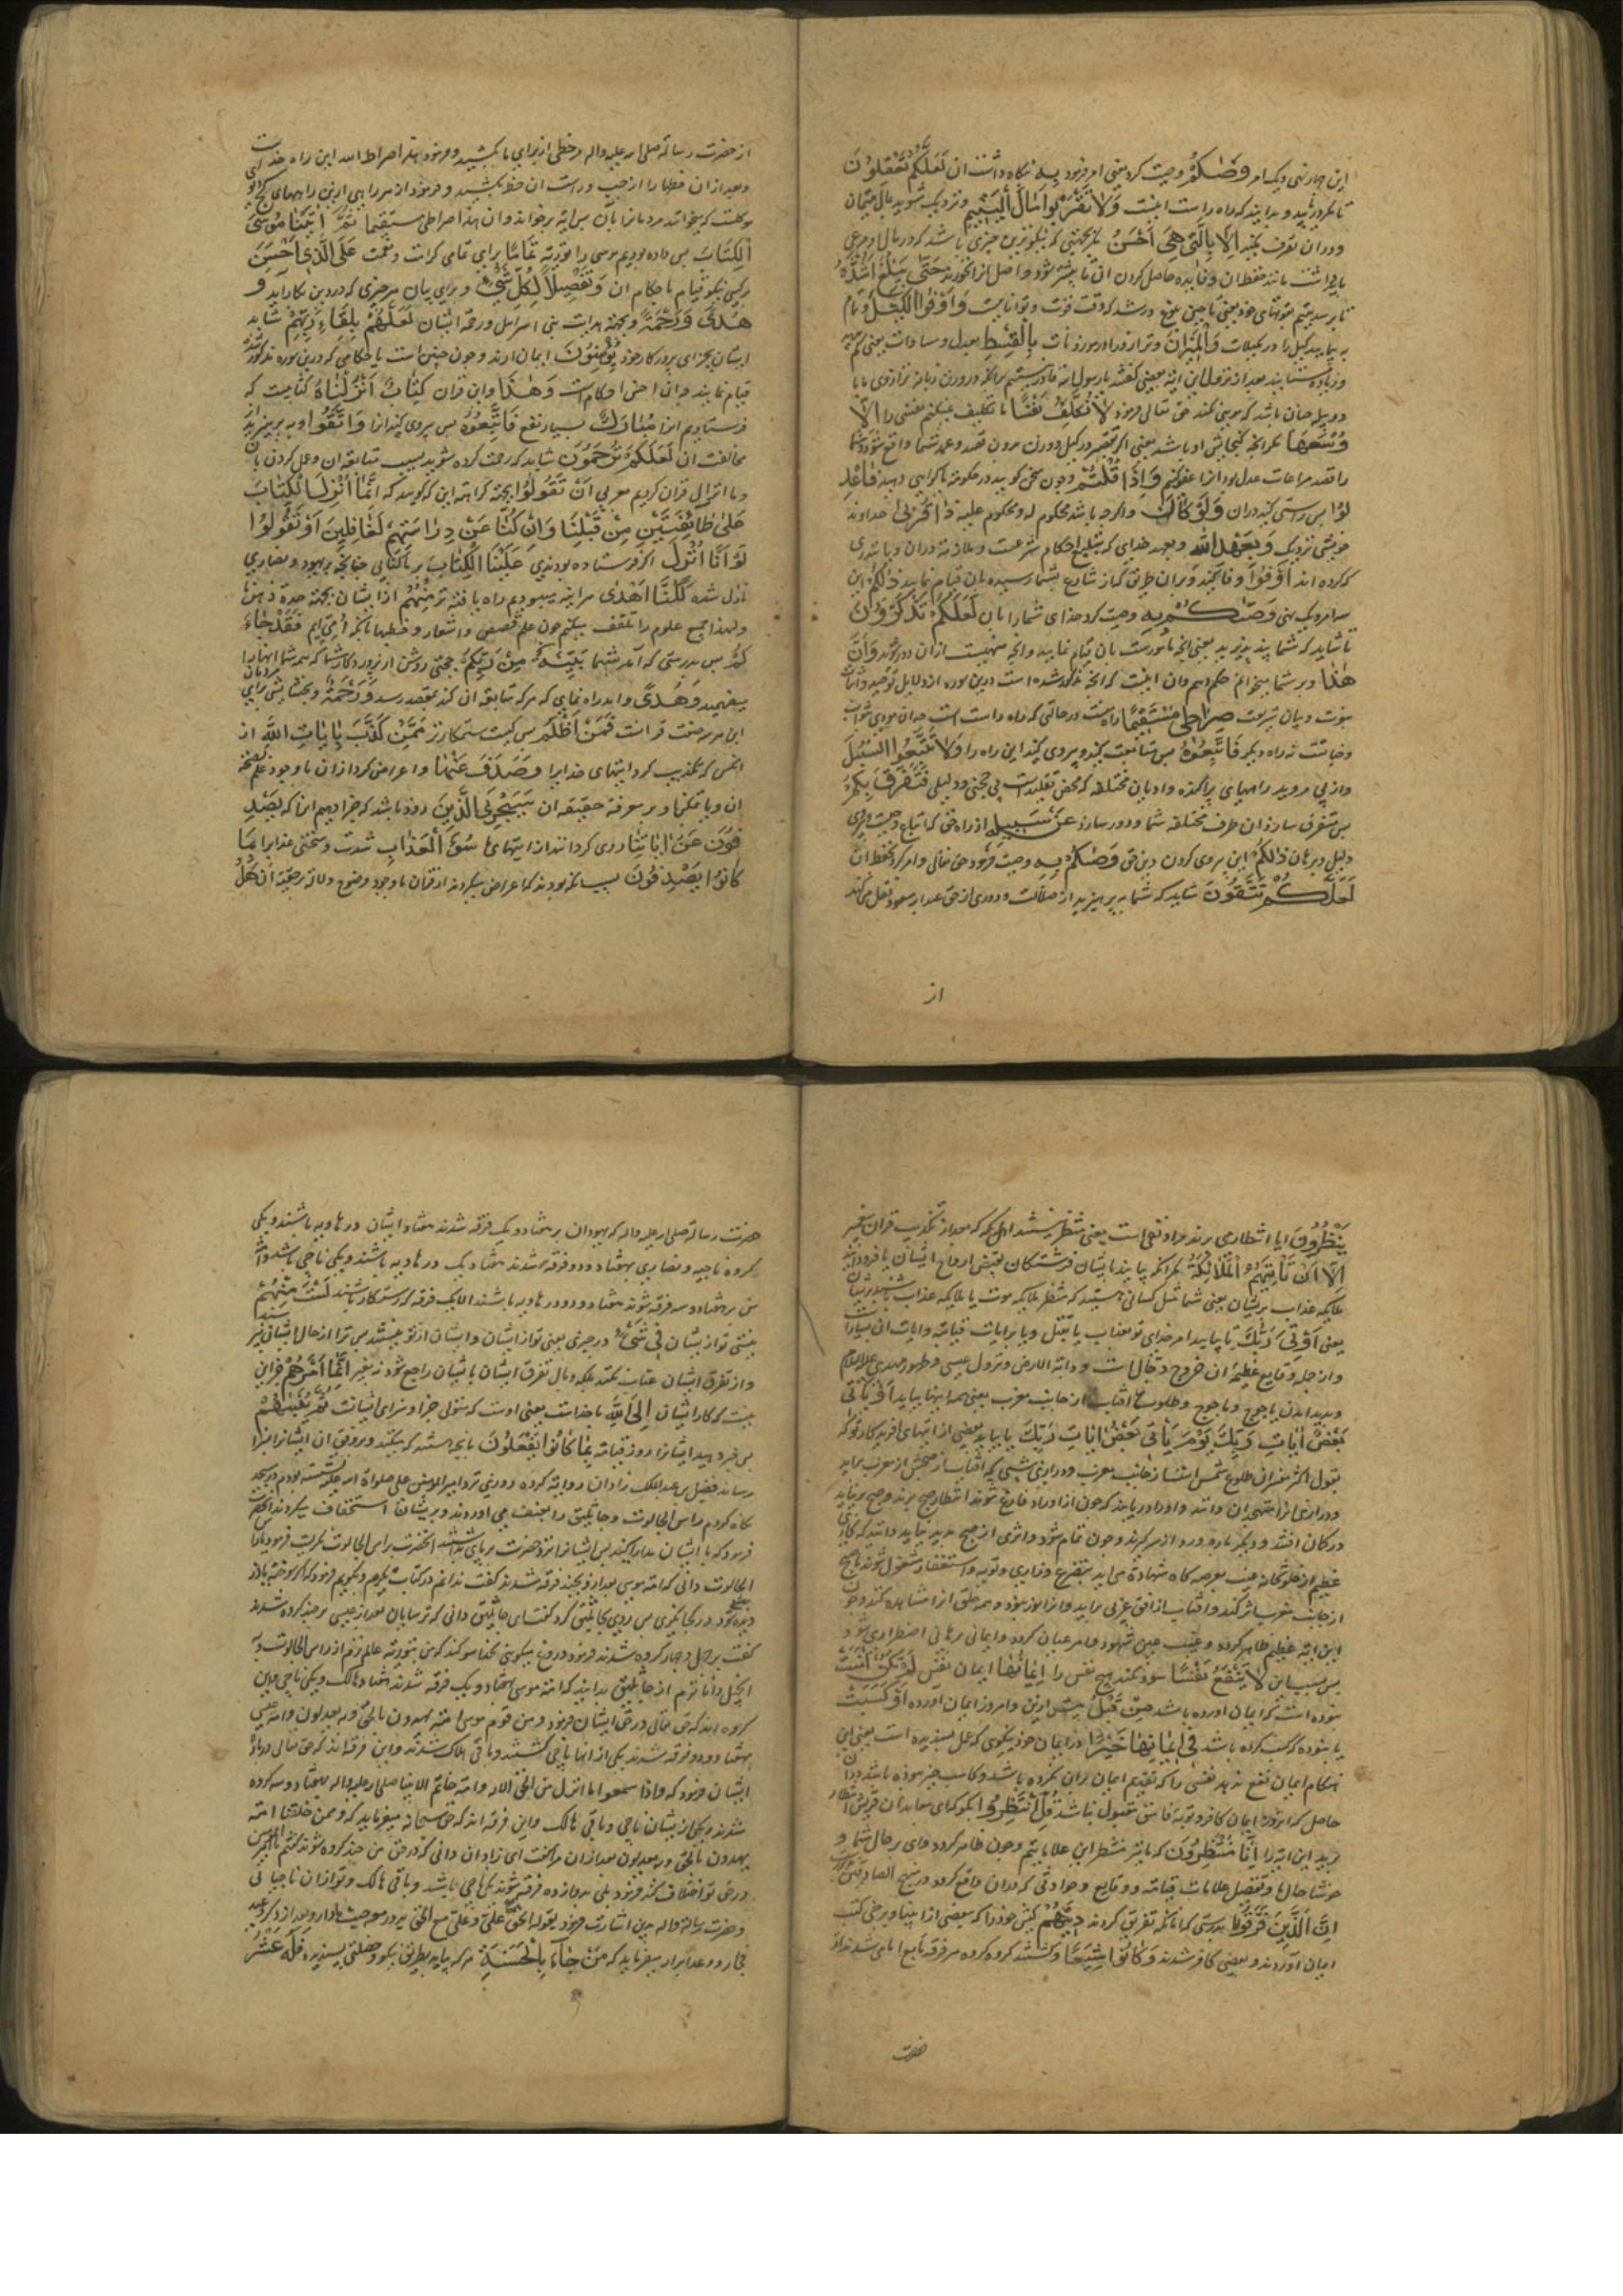 این چهار نهی و یک امر وَصّٰىكُمْ وصیت کرد یعنی امر فرمود بِهِ نگاه داشتن آن لَعَلَّكُمْ تَعْقِلُونَ
تا مگر دریابید و بدانید که راه راست اینست وَلَا تَقْرَبُوا مَالَ الْيَتِيمِ و نزدیک مشوید بمال یتیمان
و در آن تصرف مکنید اِلَّا بِالَّتِي هِيَ اَحْسَنُ مگر بجهتی که نیکوترین چیزی باشد که در مال او مرعی
باید داشت مانند حفظ آن و فایده حاصل کردن از آن تا بیشتر شود و اصل آنرا نخورند حَتَّى يَبْلُغَ اَشُدَّهُ
تا برسد یتیم بقوتهای خود یعنی تا حین بلوغ و رشد که وقت قوت و تواناییست وَاَوْفُوا الْكَيْلَ و تمام
به پیمایید کیل را در مکیلات وَالْمِيزَانَ و ترازو را در موزونات بِالْقِسْطِ بعدل و مساوات یعنی کم مدهید
و زیاده مستانید بعد از نزول این آیه بعضی گفتند یا رسول الله قادر نیستیم برآنکه در وزن زبانه ترازوی ما با
دو پله چنان باشد که موئی نکند حق تعالی فرمود لَا نُكَلِّفُ نَفْسًا ما تکلیف نمیکنیم نفسی را اِلَّا
وُسْعَهَا مگر آنچه گنجایش او باشد یعنی اگر تقصیر در کیل و وزن بدون قصد و عمد شما واقع شود و شما
را قصد مراعات عدل بود آنرا عفو کنیم وَاِذَا قُلْتُمْ و چون سخن گویید در حکومت یا گواهی دهید فَاعْدِ
لُوا پس راستی کنید در آن وَلَوْ كَانَ و اگرچه باشد محکوم له و محکوم علیه ذَا قُرْبٰى خداوند
خویشی نزدیک وَبِعَهْدِ اللّٰهِ و بعهد خدای که تبلیغ احکام شرعست و ملازمت در آن و یا نذری
که کرده‌اند اَوْفُوا وفا کنید و بر آن طریق که از شارع بشما رسیده بآن قیام نمایید ذٰلِكُمْ این
سه امر و یک نهی وَصّٰىكُمْ بِهِ وصیت کرد خدای شما را بآن لَعَلَّكُمْ تَذَكَّرُونَ
تا شاید که شما پند پذیرید یعنی آنچه مامورست بآن قیام نمایید و آنچه منهیست از آن دور شوید وَاَنَّ
هٰذَا و بر شما میخوانم حکم دهم و آن اینست که آنچه مذکور شده است درین سوره از دلایل توحید و اثبات
نبوت و بیان شریعت صِرَاطِي مُسْتَقِيمًا راه منست در حالتی که راه راست است
فَاتَّبِعُوهُ پس متابعت کنید و پیروی کنید این راه را وَلَا تَتَّبِعُوا السُّبُلَ
و از پی مروید راههای پراکنده و ادیان مختلفه که محض تقلیدست بی حجتی و دلیلی فَتَفَرَّقَ بِكُمْ
پس متفرق سازد آن طرق مختلفه شما را و دور سازد عَنْ سَبِيلِهِ از راه حق که اتباع
دلیل و برهان ذٰلِكُمْ این پیروی کردن دین حق وَصّٰىكُمْ بِهِ وصیت فرمود حق تعالی و امر کرد بحفظ آن
لَعَلَّكُمْ تَتَّقُونَ شاید که شما بپرهیزید از ضلالت و دوری از حق عبد الله مسعود نقل میکند
از
از حضرت رسالة صلی الله علیه واله که خطی از برای ما بکشید و فرمود هذا صراط الله این راه خداست
و بعد از آن خطها را از چپ و راست آن خط بکشید و فرمود از هر راهی ازین راههای کج دیوی
موکلست که میخواند مردمانرا بآن پس آیه برخواند وان هذا صراطی مستقیما ثُمَّ اٰتَيْنَا مُوسَى
الْكِتَابَ پس داده بودیم موسی را توریة تَمَامًا برای تمامی کرامت و نعمت عَلَى الَّذِي اَحْسَنَ
بر کسی نیکو قیام باحکام آن وَتَفْصِيلًا لِكُلِّ شَيْءٍ و برای بیان هر چیزی که در دین بکار آید وَ
هُدًى وَرَحْمَةً و بجهة هدایت بنی اسرائیل و رحمة ایشان لَعَلَّهُمْ بِلِقَاءِ رَبِّهِمْ شاید
ایشان بجزای پروردگار خود يُؤْمِنُونَ ایمان آرند و چون چنین است باحکامی که درین سوره مذکور شد
قیام نمایید چه آن احسن احکام است وَهٰذَا و این قرآن كِتَابٌ اَنْزَلْنَاهُ کتابیست که
فرستادیم آنرا مُبَارَكٌ بسیار نفع فَاتَّبِعُوهُ پس پیروی کنید آنرا وَاتَّقُوا و بپرهیزید از
مخالفت آن لَعَلَّكُمْ تُرْحَمُونَ شاید که رحمت کرده شوید بسبب متابعة آن و عمل کردن بآن
و ما انزال قرآن کردیم بعربی اَنْ تَقُولُوا بجهة کراهة این که گویید که اِنَّمَا اُنْزِلَ الْكِتَابُ
عَلٰى طَائِفَتَيْنِ مِنْ قَبْلِنَا وَاِنْ كُنَّا عَنْ دِرَاسَتِهِمْ لَغَافِلِينَ اَوْ تَقُولُوا
لَوْ اَنَّا اُنْزِلَ اگر فرستاده بودندی عَلَيْنَا الْكِتَابُ بر ما کتابی چنانچه بر یهود و نصاری
نازل شده لَكُنَّا اَهْدٰى هر آینه میبودیم راه یافته‌تر مِنْهُمْ از ایشان بجهة حدة ذهن ما
و لهذا جمیع علوم را تلقف میکنیم چون علم قصص و اشعار و خطبها با آنکه امّی‌ایم فَقَدْ جَاءَ
كُمْ پس بدرستی که آمد بشما بَيِّنَةٌ مِنْ رَبِّكُمْ حجتی روشن از پروردگار شما که همه شما آنها را
میفهمید وَهُدًى و راه نمایی که هر که متابعة آن کند بمقصد رسد وَرَحْمَةٌ و بخشایشی برای مردمان
این هر سه صفت قرآنست فَمَنْ اَظْلَمُ پس کیست ستمکارتر مِمَّنْ كَذَّبَ بِاٰيَاتِ اللّٰهِ از
آنکس که تکذیب کرد آیتهای خدا را وَصَدَفَ عَنْهَا و اعراض کرد از آن با وجود علم بصحة
آن و یا تمکن او بر معرفة حقیقة آن سَنَجْزِي الَّذِينَ زود باشد که جزا دهیم آنرا که يَصْدِ
فُونَ عَنْ اٰيَاتِنَا روی گردانند از آیتهای ما سُوءَ الْعَذَابِ شدت و سختی عذاب را بِمَا
كَانُوا يَصْدِفُونَ بسبب آنکه بودند که اعراض میکردند از قرآن با وجود وضوح دلالة بر صحة آن هَلْ
يَنْظُرُونَ آیا انتظار می‌برند مراد نفی است یعنی منتظر نیستند اهل مکه که بعد از تکذیب قرآن و پیغمبر
اِلَّا اَنْ تَأْتِيَهُمُ الْمَلَائِكَةُ مگر آنکه بیایند بایشان فرشتگان بقبض ارواح ایشان یا فرود آیند
ملایکه عذاب بریشان یعنی شما مثل کسانی هستید که منتظر ملایکه موت یا ملایکه عذاب باشید
اَوْ يَأْتِيَ رَبُّكَ یا بیاید امر خدای تو بعذاب یا بقتل و یا بر آیات قیامة و آیات آن بسیارست
و از جمله وقایع عظیمه آن خروج دجّال است و دابة الارض و نزول عیسی و ظهور مهدی علیه السلام
و پدید آمدن یاجوج و ماجوج و طلوع آفتاب از جانب مغرب یعنی همه اینها بیاید اَوْ يَأْتِيَ
بَعْضُ اٰيَاتِ رَبِّكَ يَوْمَ يَأْتِي بَعْضُ اٰيَاتِ رَبِّكَ یا بیاید بعضی از آیتهای آفریدگار تو که
بقول اکثر مفسران طلوع شمس است از جانب مغرب و در آن شبی که آفتاب در صبحش از مغرب برآید
و درازی آنرا متهجدان دانند و اوراد را یابند که چون از اوراد فارغ شوند انتظار صبح برند و صبح برنیاید
در گمان افتند و دیگر باره ورد از سر گیرند و چون تمام شود و اثری از صبح پدید نیاید دانند که کاری
عظیم از خلوتخانه غیب بعرصه‌گاه شهادة می‌آید بتضرع و زاری و توبه و استغفار مشغول شوند تا صبح
از جانب مغرب اثر کند و آفتاب از افق غربی برآید و همه خلق آنرا مشاهده کنند و چون
این آیه عظیم ظاهر گردد و غیب عین شهود و امر عیان گردد و ایمانی برهانی اضطراری شود
پس بسبب این لَا يَنْفَعُ نَفْسًا سود نکند هیچ نفس را اِيمَانُهَا ایمان نفس لَمْ تَكُنْ اٰمَنَتْ
نبوده است که ایمان آورده باشد مِنْ قَبْلُ پیش ازین و امروز ایمان آورده اَوْ كَسَبَتْ
یا نبوده که کسب کرده باشد فِي اِيمَانِهَا خَيْرًا در ایمان خود نیکوی که عمل پسندیده است یعنی این
هنگام ایمان نفع ندهد نفسی را که تقدیم ایمان بر آن نکرده باشد و کاسب خیر نبوده باشد در آن
حاصل که آنروز ایمان کافر و توبه فاسق مقبول نباشد قُلِ انْتَظِرُوا بگو که ای معاندان قریش انتظار
برید این آیه را اِنَّا مُنْتَظِرُونَ که ما نیز منتظر این علاماتیم و چون ظاهر گردد وای بر حال شما و
خوشا حال ما و تفصیل علامات قیامة و وقایع و حوادثی که در آن واقع گردد در منهج الصادقین مذکورست
اِنَّ الَّذِينَ فَرَّقُوا بدرستی که آنانکه تفریق کردند دِينَهُمْ کیش خود را که ببعضی از انبیا و برخی کتب
ایمان آوردند و ببعضی کافر شدند وَكَانُوا شِيَعًا و گشتند گروه گروه هر فرقه تابع امامی شدند از
حضرت
حضرت رسالة صلی الله علیه واله که یهودان بر هفتاد و یک فرقه شدند هفتاد ایشان در هاویه باشند و یکی
گروه ناجیه و نصاری بهفتاد و دو فرقه شدند هفتاد و یک در هاویه باشند و یکی ناجی باشد و امّة
من بر هفتاد و سه فرقه شوند هفتاد و دو در هاویه باشند الا یک فرقه که رستگار باشند لَسْتَ مِنْهُمْ
نیستی تو از یشان فِي شَيْءٍ در چیزی یعنی تو از ایشان و ایشان از تو نیستند
و از تفرق ایشان عتاب نکنند بلکه وبال تفرق ایشان بایشان راجع شود نه بغیر اِنَّمَا اَمْرُهُمْ جز این
نیست که کار ایشان اِلَى اللّٰهِ با خداست یعنی اوست که متولی جزا و سزای ایشانست ثُمَّ يُنَبِّئُهُمْ
پس خبر دهد ایشانرا روز قیامة بِمَا كَانُوا يَفْعَلُونَ بآنچه هستند که میکنند و بر وفق آن ایشانرا جزا
رساند فضل بن عبد الملک از زاذان روایة کرده که روزی نزد امیر المؤمنین علی صلواة الله علیه نشسته بودم در مسجد
نگاه کردم راس الجالوت و جاثلیق را بعنف می‌آوردند و بریشان استخفاف میکردند آنحضرت
فرمود که با ایشان مدارا کنید پس ایشانرا نزد حضرت بر پای بداشتند آنحضرت براس الجالوت فرمود یا راس
الجالوت دانی که امّة موسی بعد ازو بچند فرقه شدند گفت ندانم در کتاب نگرم و بگویم
پس روی بجاثلیق کرد گفت ای جاثلیق دانی که ترسایان بعد از عیسی بر چند گروه شدند
گفت بر چهل و چهار گروه شدند فرمود دروغ میگوئی بخدا سوگند که من بتوریة عالم‌ترم از راس الجالوت و به
انجیل داناترم از جاثلیق بدانید که امّة موسی بهفتاد و یک فرقه شدند هفتاد هالک و یکی ناجی و این
گروه‌اند که حق تعالی در حق ایشان فرمود ومن قوم موسی امة یهدون بالحق وبه یعدلون و امّة عیسی
بهفتاد و دو فرقه شدند یکی از آنها ناجی گشتند و باقی هلاک شدند و این فرقه‌اند که حق تعالی درباره
ایشان فرمود که واذا سمعوا ما انزل من الحق الایه و امّة خاتم الانبیا صلی الله علیه واله بهفتاد و سه گروه
شدند و یکی از یشان ناجی و باقی هالک و این فرقه‌اند که حق سبحانه میفرماید که وممن خلقنا امّة
یهدون بالحق وبه یعدلون بعد از آن مرا گفت ای زاذان دانی که در حق من چند گروه شوند گفتم یا امیر المؤمنین
در حق تو اختلاف کنند فرمود بلی بدوازده فرقه شوند یکی ناجی باشد و باقی هالک و تو از آن ناجیانی
و حضرت رسالة واله بدین اشارت فرمود بقوله الحق مع علی وعلی مع الحق یدور معه حیث ما دار و بعد از ذکر وعید
فجار وعد ابرار میفرماید که مَنْ جَاءَ بِالْحَسَنَةِ هر که بیاید بطریق نیکو و خصلتی پسندیده فَلَهُ عَشْرُ